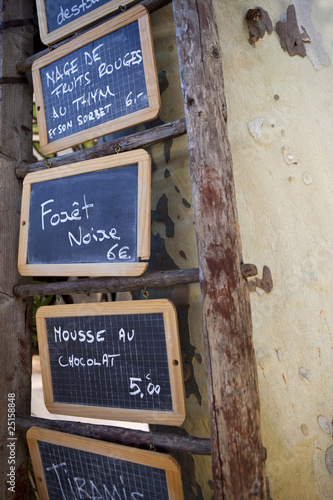 NAGE DE
FRUITS ROUGES
AU THYM 6,-
ET SON SORBET
Foxêt
Noixe
6€
MOUSSE AU
CHOCOLAT
5,00
TIRAMIS
© 25158848